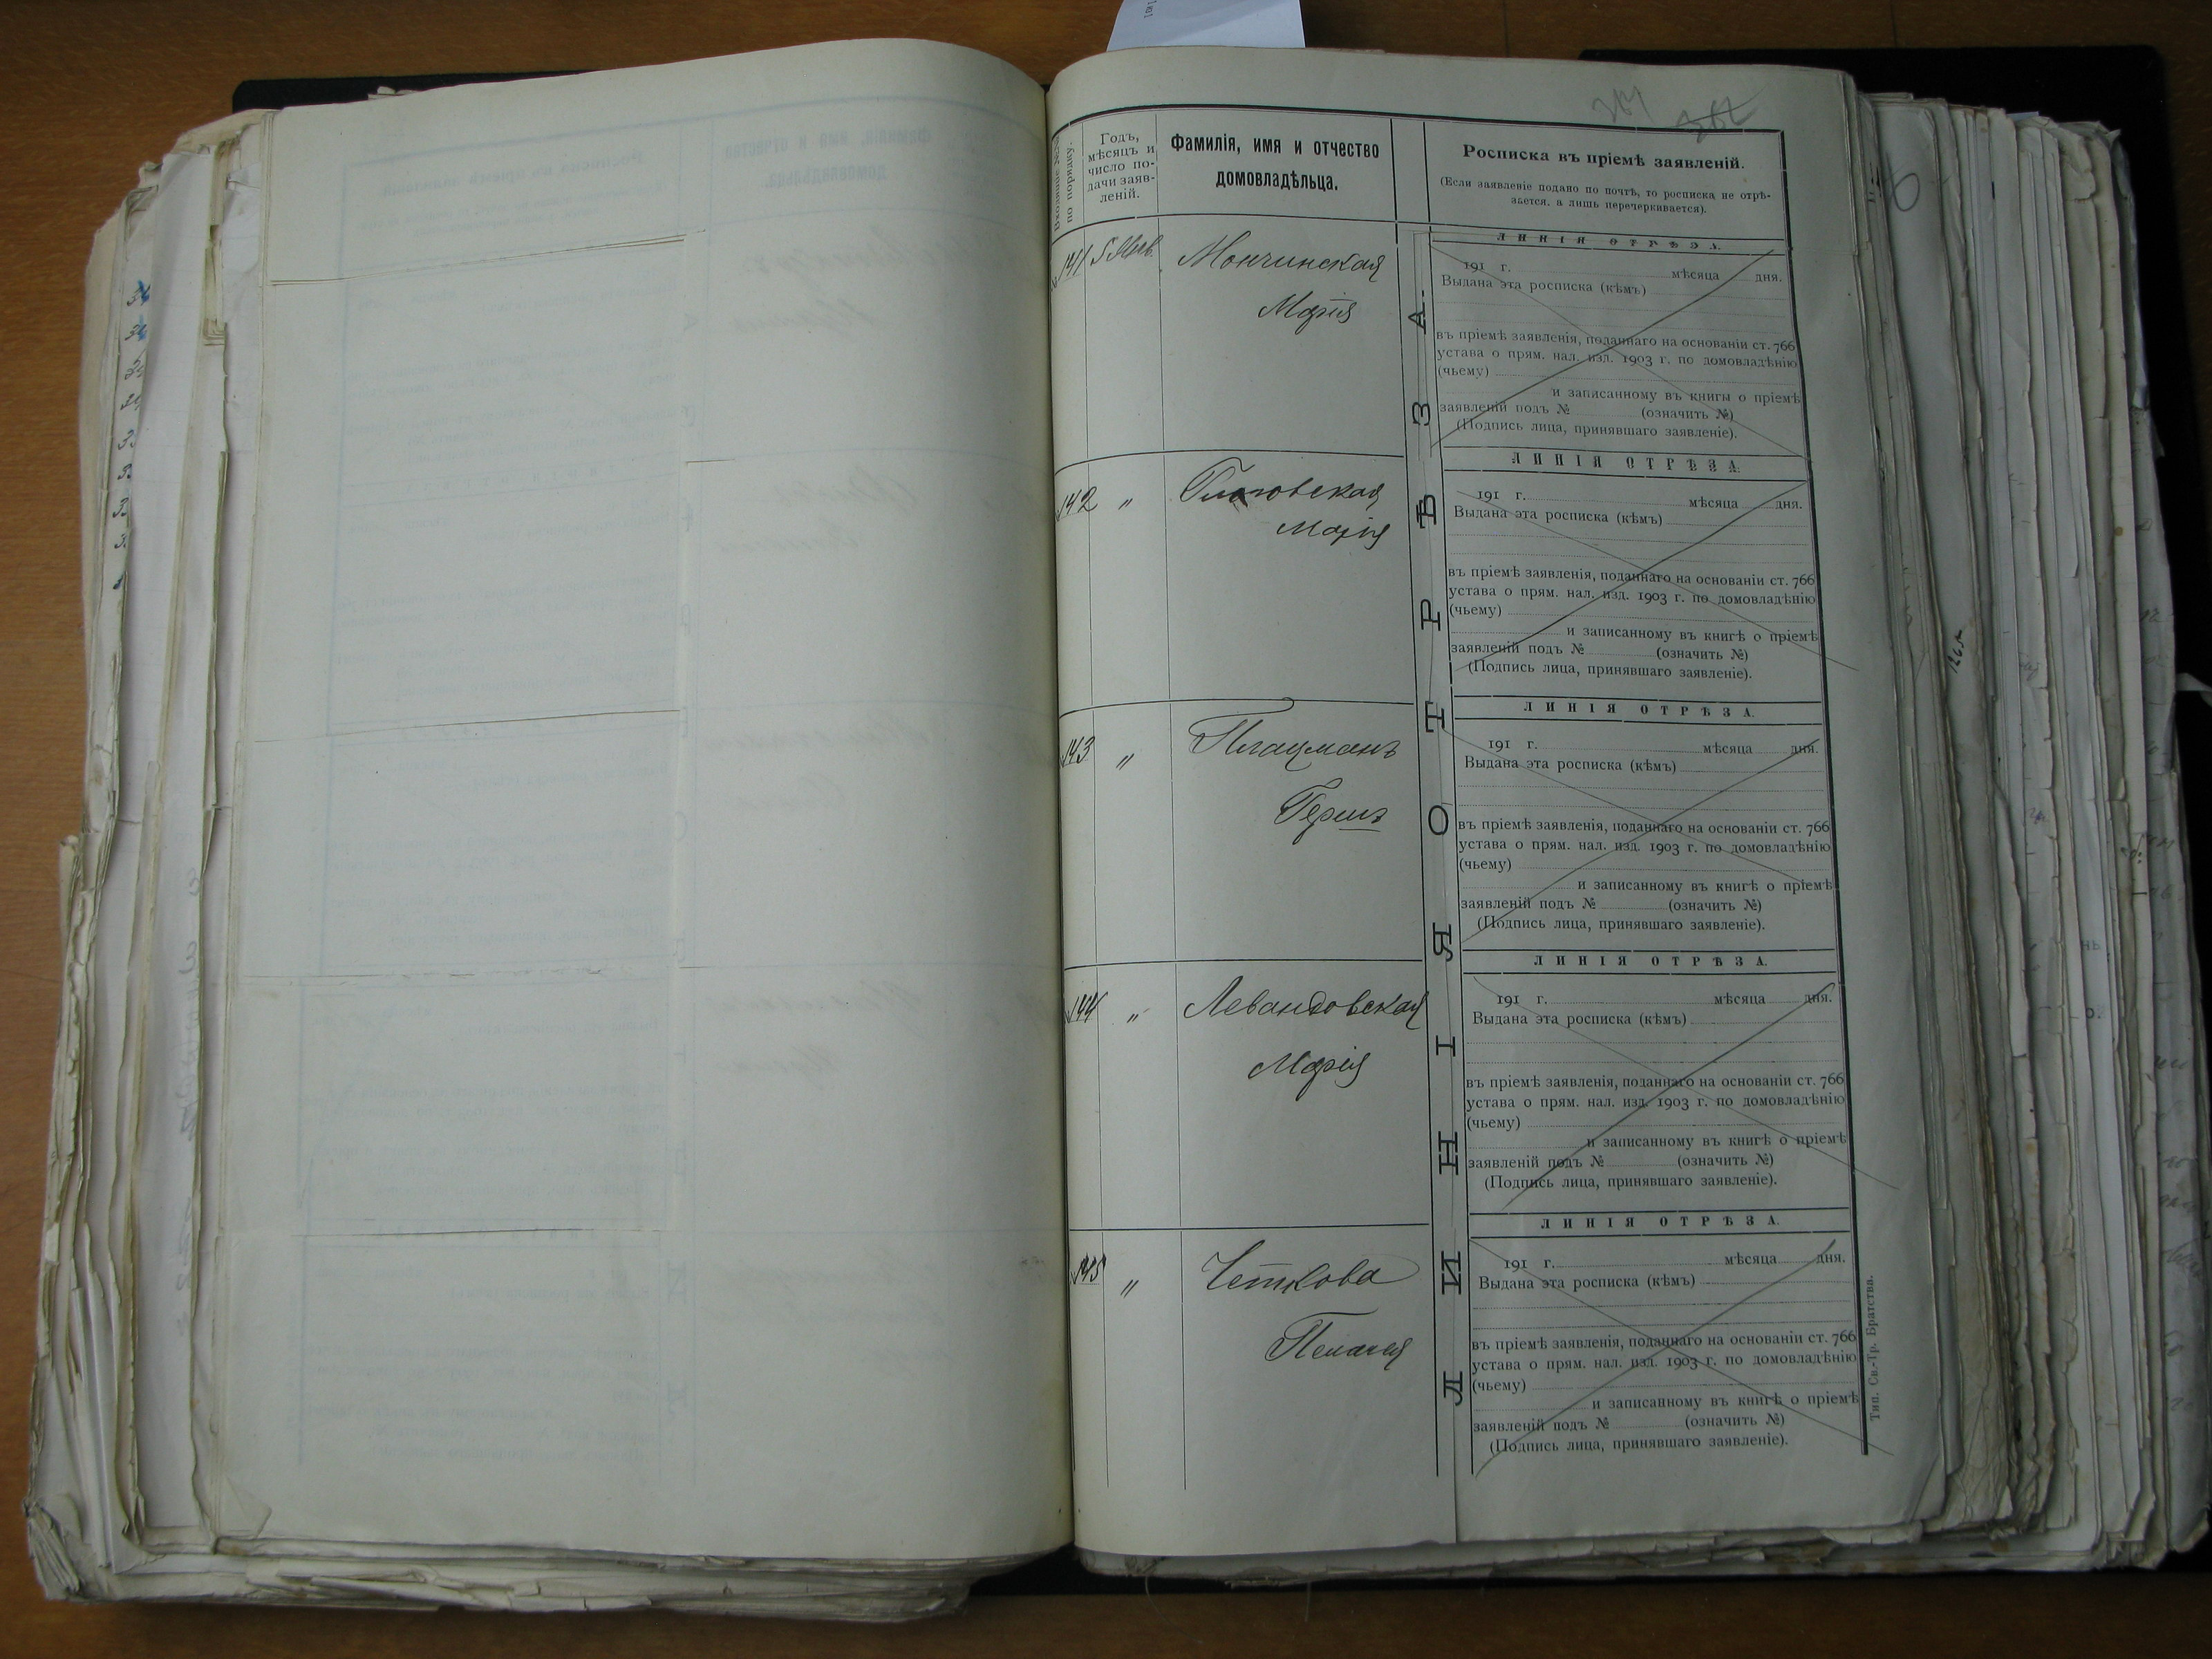 361
362
Входящіе №№ по порядку.
Годъ,
мѣсяцъ и
число по-
дачи заяв-
леній.
Фамилія, имя и отчество
домовладѣльца.
Росписка въ пріемѣ заявленій.
(Если заявленіе подано по почтѣ, то росписка не отрѣ-
зается, а лишь перечеркивается).
ЛИНІЯ ОТРѢЗА.
141
Мончинская
Марія
191 г. мѣсяца дня.
Выдана эта росписка (кѣмъ)
въ пріемѣ заявленія, поданнаго на основаніи ст. 766
устава о прям. нал. изд. 1903 г. по домовладѣнію
(чьему)
и записанному въ книгы о пріемѣ
заявленій подъ № (означить №)
(Подпись лица, принявшаго заявленіе).
ЛИНІЯ ОТРѢЗА.
142 "
Марія
191 г. мѣсяца дня.
Выдана эта росписка (кѣмъ)
въ пріемѣ заявленія, поданнаго на основаніи ст. 766
устава о прям. нал. изд. 1903 г. по домовладѣнію
(чьему)
и записанному въ книгѣ о пріемѣ
заявленій подъ № (означить №)
(Подпись лица, принявшаго заявленіе).
ЛИНІЯ ОТРѢЗА.
143 "
Плацманъ
Гершъ
191 г. мѣсяца дня.
Выдана эта росписка (кѣмъ)
въ пріемѣ заявленія, поданнаго на основаніи ст. 766
устава о прям. нал. изд. 1903 г. по домовладѣнію
(чьему)
и записанному въ книгѣ о пріемѣ
заявленій подъ № (означить №)
(Подпись лица, принявшаго заявленіе).
ЛИНІЯ ОТРѢЗА.
144 "
Левандовская
Марія
191 г. мѣсяца дня.
Выдана эта росписка (кѣмъ)
въ пріемѣ заявленія, поданнаго на основаніи ст. 766
устава о прям. нал. изд. 1903 г. по домовладѣнію
(чьему)
и записанному въ книгѣ о пріемѣ
заявленій подъ № (означить №)
(Подпись лица, принявшаго заявленіе).
ЛИНІЯ ОТРѢЗА.
145 "
Четкова
Пелагея
191 г. мѣсяца дня.
Выдана эта росписка (кѣмъ)
въ пріемѣ заявленія, поданнаго на основаніи ст. 766
устава о прям. нал. изд. 1903 г. по домовладѣнію
(чьему)
и записанному въ книгѣ о пріемѣ
заявленій подъ № (означить №)
(Подпись лица, принявшаго заявленіе).
ЛИНІЯ ОТРѢЗА.
Тип. Св.-Тр. Братства.
1265